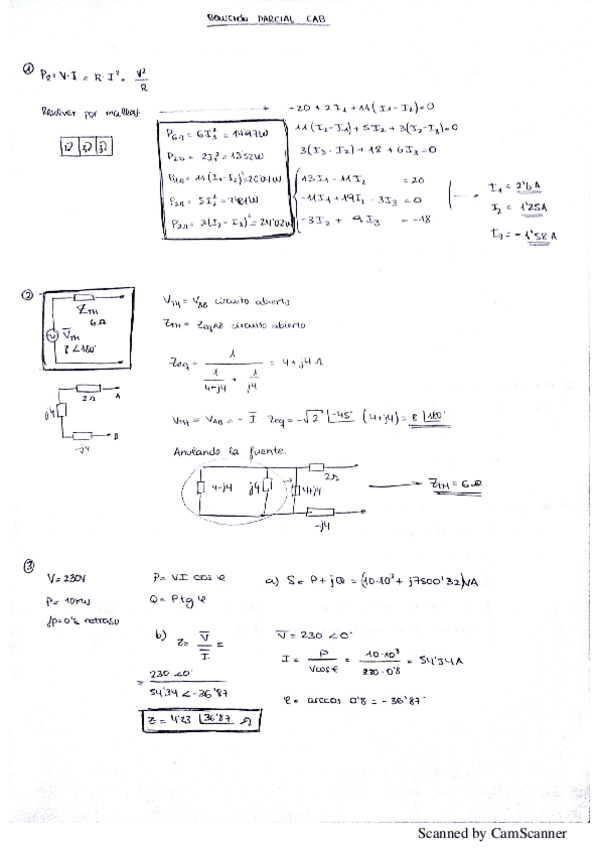 SOLUCIÓN PARCIAL CAB
① P_R = V·I = R·I² = V²/R
Resolver por mallas:
-20 + 2I₁ + 11(I₁-I₂) = 0
11(I₂-I₁) + 5I₂ + 3(I₂-I₃) = 0
3(I₃-I₂) + 18 + 6I₃ = 0
P₆Ω = 6I₃² = 14'97W
P₂Ω = 2I₁² = 13'52W
P₁₁Ω = 11(I₁-I₂)² = 20'01W
P₅Ω = 5I₂² = 7'81W
P₃Ω = 3(I₂-I₃)² = 24'02W
13I₁ - 11I₂ = 20
-11I₁ + 19I₂ - 3I₃ = 0
-3I₂ + 9I₃ = -18
I₁ = 2'6A
I₂ = 1'25A
I₃ = -1'58A
②
Z_TH
6Ω
V_TH
8∠180°
V_TH = V_AB circuito abierto
Z_TH = Z_eqAB circuito abierto
Zeq = 1 / (1/(4-j4) + 1/j4) = 4+j4 Ω
2Ω A
j4
B
-j4
V_TH = V_AB = -I Zeq = -√2 ∠-45° (4+j4) = 8 ∠180°
Anulando la fuente:
2Ω
4-j4 j4 4+j4
-j4
Z_TH = 6Ω
③
V = 230V
P = 10kW
fp = 0'8 retraso
P = VI cos φ
Q = P tg φ
a) S = P + jQ = (10·10³ + j7500'32)VA
b) Z = V/I =
= 230∠0° / 54'34∠-36'87
Z = 4'23 ∠36'87° Ω
V = 230∠0°
I = P/(V cosφ) = 10·10³/(230·0'8) = 54'34A
φ = arccos 0'8 = -36'87°
Scanned by CamScanner